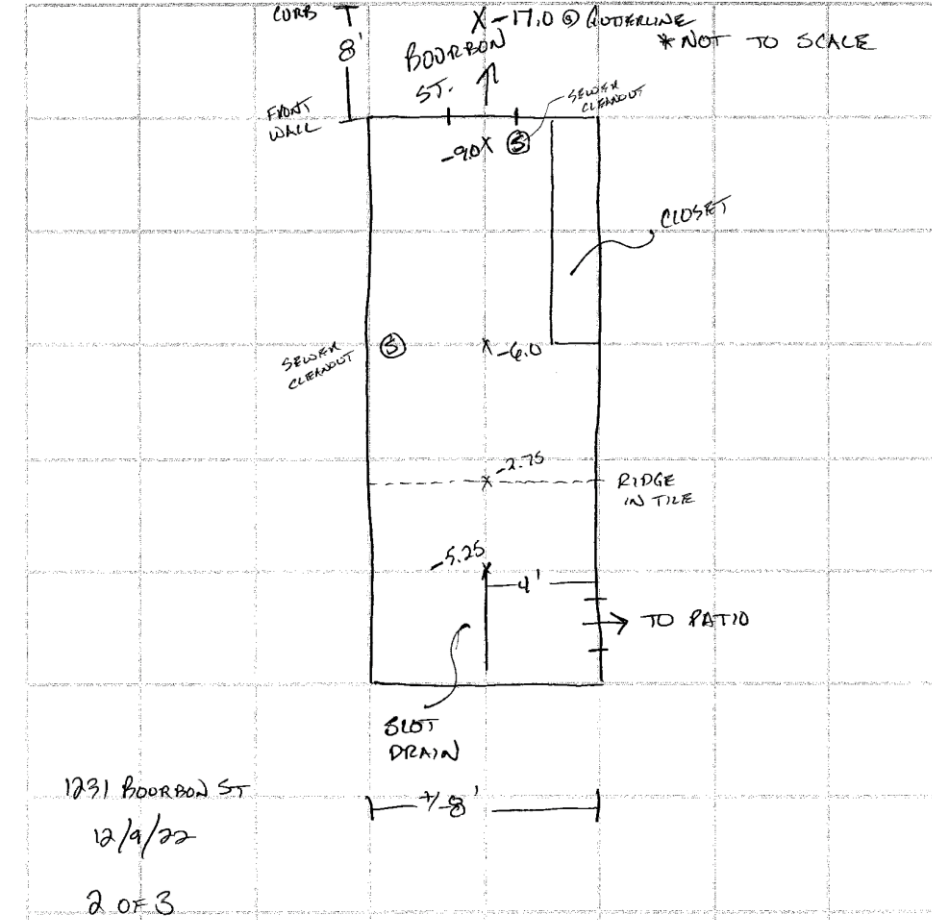 CURB
8'
X -17.0 @ GUTTERLINE
* NOT TO SCALE
BOURBON
ST.
SEWER
CLEANOUT
FRONT
WALL
-9.0 X
S
CLOSET
SEWER
CLEANOUT
S
X -6.0
X -2.75
RIDGE
IN TILE
-5.25
X
4'
TO PATIO
SLOT
DRAIN
+/-8'
1231 BOURBON ST
12/9/22
2 OF 3